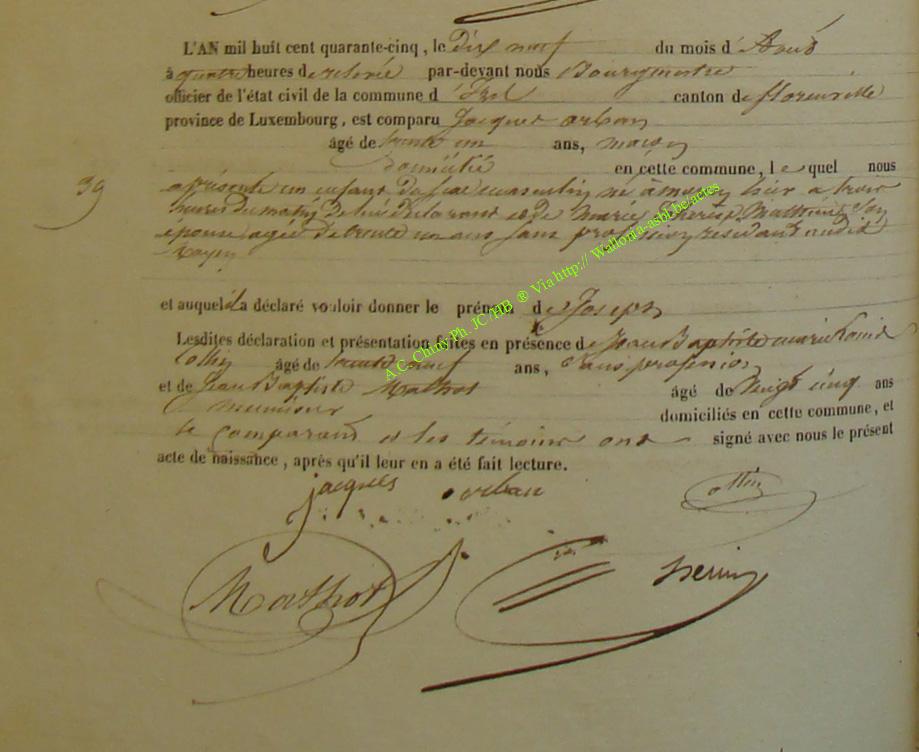 L'AN mil huit cent quarante-cinq, le dix neuf du mois d'Août
à quatre heures de relevée par-devant nous Bourgmestre
officier de l'état civil de la commune d'Izel canton de florenville
province de Luxembourg, est comparu Jacques orban
âgé de trente un ans, maçon
domicilié en cette commune, lequel nous
39
a présenté un enfant du sexe masculin né à moyen hier a trois
heures du matin de lui déclarant et de Marie Thérèse Mathieu son
épouse agée de trente un ans sans profession residant audit
moyen
et auquel il a déclaré vouloir donner le prénom de Joseph
Lesdites déclaration et présentation faites en présence de Jean Baptiste marie Louis
Collin âgé de trente neuf ans, sans profession
et de Jean Baptiste Mathot âgé de vingt cinq ans
meunier domiciliés en cette commune, et
le comparant et les témoins ont signé avec nous le présent
acte de naissance, après qu'il leur en a été fait lecture.
jacques orban
Mathot
A C. Chiny Ph. JC/HB ® Via http:// Wallonia-asbl.be/actes